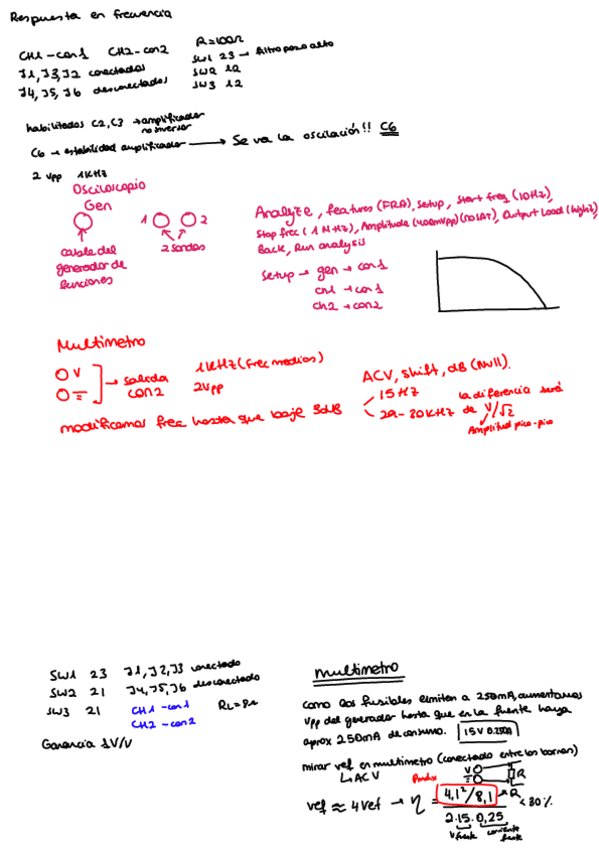 Respuesta en frecuencia
CH1 - con1 CH2 - con2 R=100Ω
J1, J3, J2 conectados SW1 23 → filtro paso alto
J4, J5, J6 desconectados SW2 12
SW3 12
habilitados C2, C3 → amplificador no inversor
C6 → estabilidad amplificador → Se va la oscilación!! C6
2 Vpp 1KHz
Osciloscopio
Gen
1 2
cable del generador de funciones
2 sondas
Analyze, features (FRA), Setup, Start freq (10Hz),
Stop frec (1 MHz), Amplitude (400mVpp)(no SAT), Output Load (high),
Back, Run analysis
Setup → gen → con1
ch1 → con1
ch2 → con2
Multimetro
V → salida con2
1KHz (frec medias)
2Vpp
ACV, shift, dB (Null).
modificamos frec hasta que baje 3dB
15 Hz
29-30KHz
la diferencia será de V/√2
Amplitud pico-pico
SW1 23 J1, J2, J3 conectado
SW2 21 J4, J5, J6 desconectado
SW3 21 CH1 - con1 RL=
CH2 - con2
Ganancia 1V/V
multimetro
como los fusibles limiten a 250mA, aumentamos
Vpp del generador hasta que en la fuente haya
aprox 250mA de consumo. 15V 0.250A
mirar vef en multimetro (conectado entre los bornas)
↳ ACV
V R
Pmáx
vef ≈ 4Vef → η = 4,1²/8,1 → R < 30%
2·15·0,25
Vfuente corriente fuente